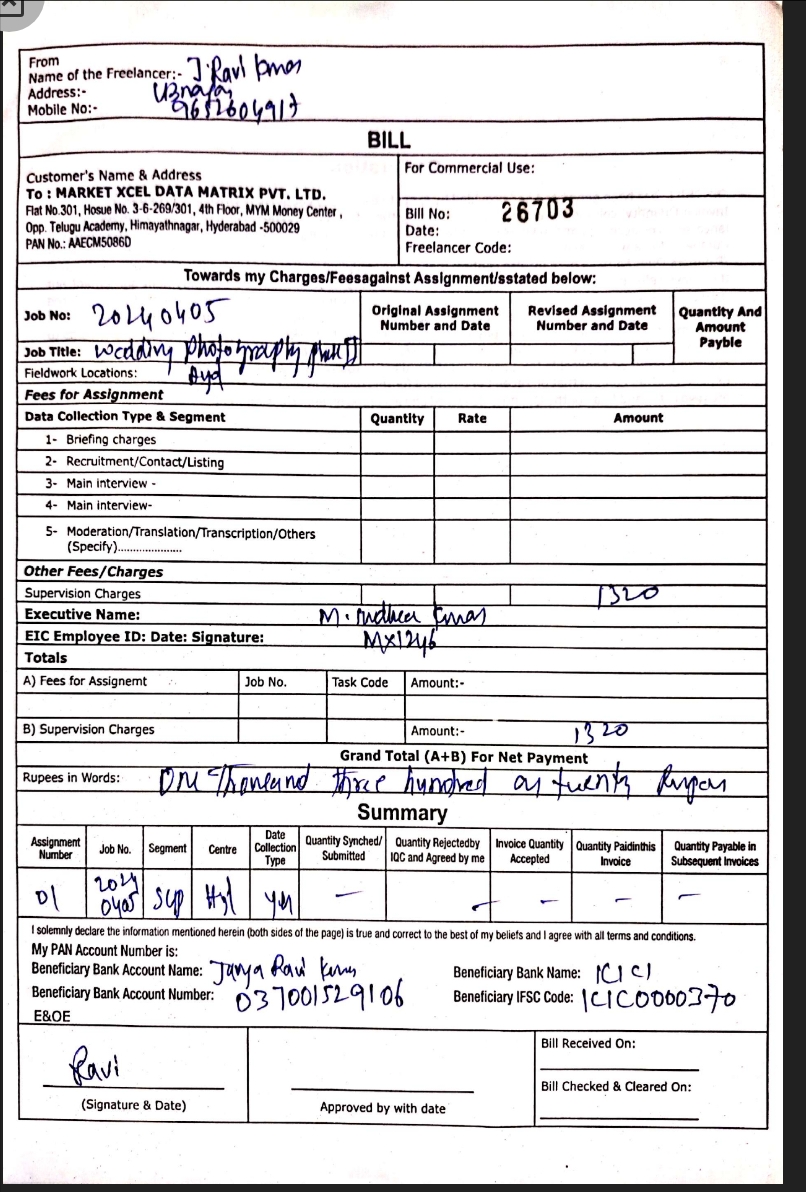 From
Name of the Freelancer:- J. Ravi Kumar
Address:-
Mobile No:- 9652604917
BILL
Customer's Name & Address
To : MARKET XCEL DATA MATRIX PVT. LTD.
Flat No.301, Hosue No. 3-6-269/301, 4th Floor, MYM Money Center ,
Opp. Telugu Academy, Himayathnagar, Hyderabad -500029
PAN No.: AAECM5086D
For Commercial Use:
Bill No: 26703
Date:
Freelancer Code:
Towards my Charges/Feesagainst Assignment/sstated below:
Job No: 20240405
Original Assignment Number and Date
Revised Assignment Number and Date
Quantity And Amount Payble
Job Title: wedding photography
Fieldwork Locations: Hyd
Fees for Assignment
Data Collection Type & Segment Quantity Rate Amount
1- Briefing charges
2- Recruitment/Contact/Listing
3- Main interview -
4- Main interview-
5- Moderation/Translation/Transcription/Others
(Specify).....................
Other Fees/Charges
Supervision Charges 1320
Executive Name: M. Sudheer Kumar
EIC Employee ID: Date: Signature: MX1246
Totals
A) Fees for Assignemt Job No. Task Code Amount:-
B) Supervision Charges Amount:- 1320
Grand Total (A+B) For Net Payment
Rupees in Words: One Thousand three hundred twenty Rupees
Summary
Assignment Number Job No. Segment Centre Date Collection Type Quantity Synched/ Submitted Quantity Rejectedby IQC and Agreed by me Invoice Quantity Accepted Quantity Paidinthis Invoice Quantity Payable in Subsequent Invoices
01 2024 0405 SUP Hyd - - - - -
I solemnly declare the information mentioned herein (both sides of the page) is true and correct to the best of my beliefs and I agree with all terms and conditions.
My PAN Account Number is:
Beneficiary Bank Account Name: Ravi Kumar
Beneficiary Bank Name: ICICI
Beneficiary Bank Account Number: 037001529106
Beneficiary IFSC Code: ICIC0000370
E&OE
Ravi
(Signature & Date)
Approved by with date
Bill Received On:
Bill Checked & Cleared On: